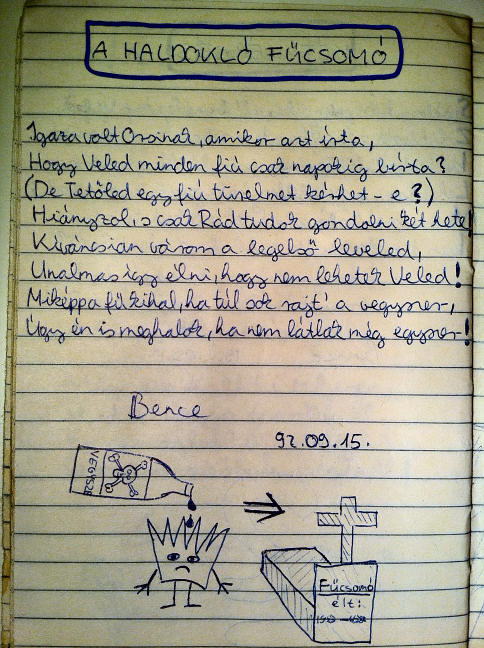 A HALDOKLÓ FŰCSOMÓ
Igaza volt Orsinak, amikor azt írta,
Hogy Veled minden fiú csak napokig bírta?
(De Tetőled egy fiú türelmet kérhet-e?)
Hiányzol, s csak Rád tudok gondolni két hete!
Kíváncsian várom a legelső leveled,
Unalmas így élni, hogy nem lehetek Veled!
Miképp a fű kihal, ha túl sok rajt' a vegyszer,
Úgy én is meghalok, ha nem látlak még egyszer!
Bence
92.09.15.
VEGYSZE
Fűcsomó
élt: